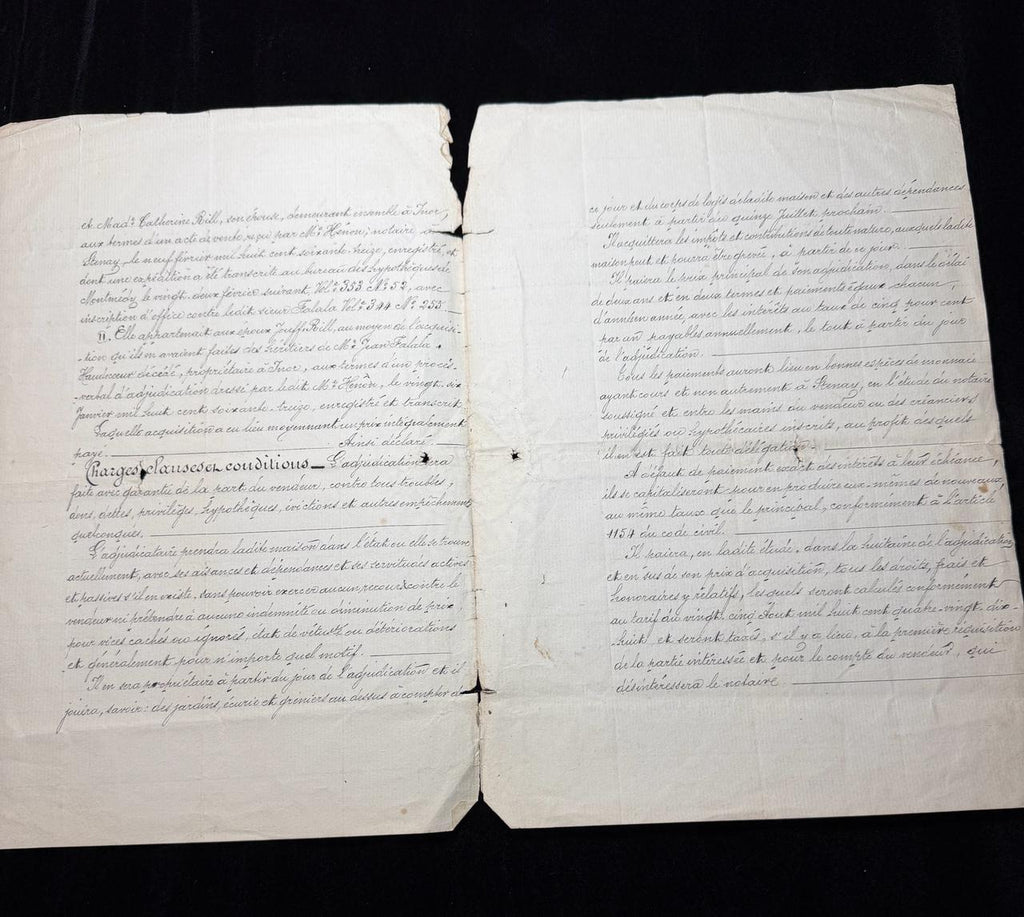 et Mad.e Catherine Rill, son épouse, demeurant ensemble à Inor,
aux termes d'un acte de vente reçu par M.e Henon, notaire à
Stenay, le neuf février mil huit cent soixante-treize, enregistré, et
dont une expédition a été transcrite au bureau des hypothèques de
Montmédy le vingt-deux février suivant Vol.e 353 N.o 52, avec
inscription d'office contre ledit sieur Falala Vol.e 344 N.o 255.
II. Elle appartenait aux époux Juff-Rill, au moyen de l'acquisi-
-tion qu'ils en avaient faites des héritiers de M.r Jean Falala-
Haudecoeur décédé, propriétaire à Inor, aux termes d'un procès-
verbal d'adjudication dressé par ledit M.e Henon, le vingt-six
Janvier mil huit cent soixante-treize, enregistré et transcrit.
Laquelle acquisition a eu lieu moyennant un prix intégralement
payé. Ainsi déclaré.
Charges, clauses et conditions _ L'adjudication sera
faite avec garantie de la part du vendeur, contre tous troubles,
dons, dettes, privilèges, hypothèques, évictions et autres empêchements
quelconques.
L'adjudicataire prendra ladite maison dans l'état où elle se trouve
actuellement, avec ses aisances et dépendances et ses servitudes actives
et passives s'il en existe, sans pouvoir exercer aucun recours contre le
vendeur ni prétendre à aucune indemnité ou diminution de prix,
pour vices cachés ou ignorés, état de vétusté ou détériorations
et généralement pour n'importe quel motif.
Il en sera propriétaire à partir du jour de l'adjudication et il
jouira, savoir: des jardins, écurie et greniers au dessus à compter de
ce jour et du corps de logis de ladite maison et des autres dépendances
seulement à partir du quinze Juillet prochain.
Il acquittera les impôts et contributions de toute nature, auxquels ladite
maison peut et pourra être grevée, à partir de ce jour.
Il paiera le prix principal de son adjudication, dans le délai
de deux ans et en deux termes et paiements égaux chacun,
d'année en année, avec les intérêts au taux de cinq pour cent
par an payables annuellement, le tout à partir du jour
de l'adjudication.
Tous les paiements auront lieu en bonnes espèces de monnaie
ayant cours et non autrement à Stenay, en l'étude du notaire
soussigné et entre les mains du vendeur ou des créanciers
privilégiés ou hypothécaires inscrits, au profit desquels
il en est fait toute délégation.
A défaut de paiement exact des intérêts à leur échéance,
ils se capitaliseront pour en produire eux-mêmes de nouveaux
au même taux que le principal, conformément à l'article
1154 du code civil.
Il paiera, en ladite étude, dans la huitaine de l'adjudication
et en sus de son prix d'acquisition, tous les droits, frais et
honoraires y relatifs, lesquels seront calculés conformément
au tarif du vingt-cinq Août mil huit cent quatre-vingt-dix-
huit et seront taxés, s'il y a lieu, à la première réquisition
de la partie intéressée et pour le compte du vendeur, qui
désintéressera le notaire